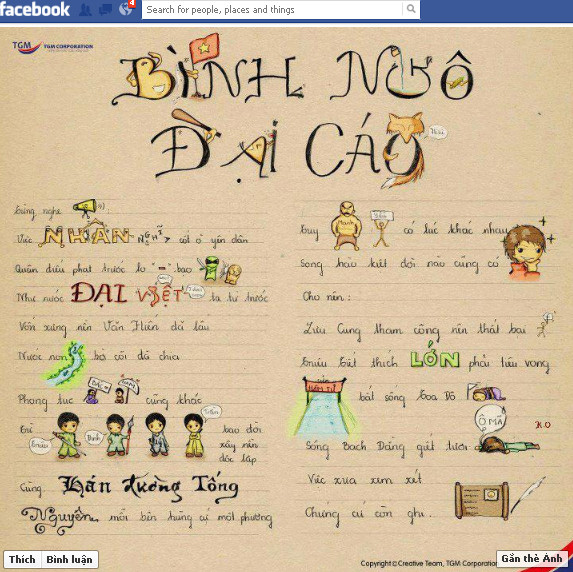 facebook
4
Search for people, places and things
TGM
TGM CORPORATION
BÌNH NGÔ
ĐẠI CÁO
Từng nghe :
Việc NHÂN NGHĨA cốt ở yên dân
Quân điếu phạt trước lo "—" bạo
Như nước ĐẠI VIỆT ta từ trước
Vốn xưng nền Văn Hiến đã lâu
Nước non bờ cõi đã chia
Phong tục BẮC NAM cũng khác
Từ Triệu Đinh Trần bao đời
xây nền
độc lập
Cùng Hán Đường Tống
Nguyên mỗi bên hùng cứ một phương
Tuy Mạnh Yếu có lúc khác nhau
Song hào kiệt đời nào cũng có
Cho nên :
Lưu Cung tham công nên thất bại
Triệu Tiết thích LỚN phải tiêu vong
HÀM TỬ bắt sống Toa Đô
Ô MÃ
K.O
Sông Bạch Đằng giết tươi
Việc xưa xem xét
Chứng cứ còn ghi...
Thích
Bình luận
Copyright © Creative Team, TGM Corporation
Gắn thẻ Ảnh